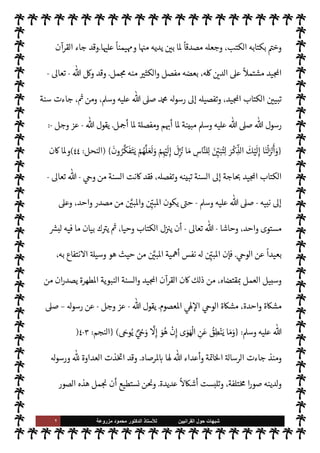 وختم بكتابه الكتب، وجعله مصدقاً لما بين يديه منها ومهيمناً عليها.وقد جاء القرآن
المجيد مشتملاً على الدين كله، بعضه مفصل والكثير منه مجمل. وقد وكل الله - تعالى -
تبيين الكتاب المجيد، وتفصيله إلى رسوله محمد صلى الله عليه وسلم، ومن ثم، جاءت سنة
رسول الله صلى الله عليه وسلم مبينة لما أبهم ومفصلة لما أجمل. يقول الله - عز وجل -:
{وَأَنْزَلْنَا إِلَيْكَ الذِّكْرَ لِتُبَيِّنَ لِلنَّاسِ مَا نُزِّلَ إِلَيْهِمْ وَلَعَلَّهُمْ يَتَفَكَّرُونَ} (النحل: ٤٤) ولما كان
الكتاب المجيد بحاجة إلى السنة تبينه وتفصله، فقد كانت السنة من وحي - الله - تعالى -
إلى نبيه - صلى الله عليه وسلم - حتى يكون المبيِّن والمبيَّن من مصدر واحد، وعلى
مستوى واحد، وحاشا - الله - تعالى - أن ينزل الكتاب وحيا، ثم يترك بيان ما فيه لبشر
بعيداً عن الوحي. فإن المبيِّن له نفس أهمية المبيَّن من حيث هو وسيلة الانتفاع به،
وسبيل العمل بمقتضاه. من ذلك كان القرآن المجيد والسنة النبوية المطهرة يصدران من
مشكاة واحدة، مشكاة الوحي الإلهي المعصوم. يقول الله - عز وجل - عن رسوله – صلى
الله عليه وسلم: (وَمَا يَنْطِقُ عَنِ الْهَوَى إِنْ هُوَ إِلَّا وَحْيٌ يُوحَى) (النجم: ٣-٤)
ومنذ جاءت الرسالة الخاتمة وأعداء الله لها بالمرصاد. وقد اتخذت العداوة لله ورسوله
ولدينه صورا مختلفة، وتلبست أشكالاً عديدة. ونحن نستطيع أن نجمل هذه الصور
شبهات حول القرآنيين للأستاذ الدكتور محمود مزروعة ٢